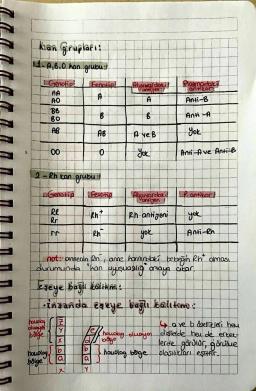 Kan Grupları:
1- A,B,0 kan grubu:
Genotip Fenotip Alyuvardaki Antijen Plazmadaki antikor
AA
AO A A Anti-B
BB
BO B B Anti-A
AB AB A ve B yok
OO O yok Anti-A ve Anti-B
2- Rh kan grubu:
Genotip Fenotip Alyuvardaki Antijen P. antikor
RR
Rr Rh+ Rh antijeni yok
rr Rh- yok Anti-Rh
not: annenin Rh-, anne karnındaki bebeğin Rh+ olması
durumunda "kan uyuşmazlığı" ortaya çıkar.
Eşeye bağlı kalıtım:
-İnsanda eşeye bağlı kalıtım:
homolog olmayan bölge
homolog olmayan bölge
homolog bölge
homolog bölge
X Y
a ve b özellikleri hem
dişilerde hem de erkek-
lerde görülür, görülme
olasılıkları eşittir.